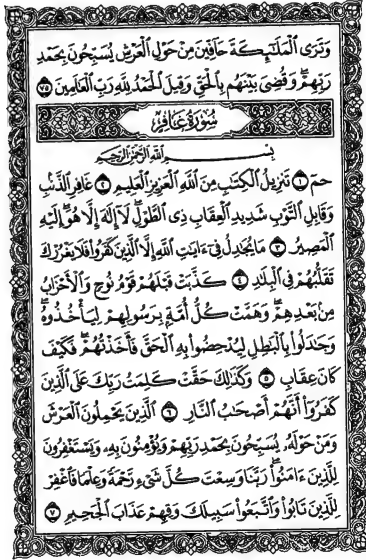 وَتَرَى ٱلْمَلَـٰٓئِكَةَ حَآفِّينَ مِنْ حَوْلِ ٱلْعَرْشِ يُسَبِّحُونَ بِحَمْدِ
رَبِّهِمْ ۖ وَقُضِىَ بَيْنَهُم بِٱلْحَقِّ وَقِيلَ ٱلْحَمْدُ لِلَّهِ رَبِّ ٱلْعَـٰلَمِينَ ٧٥
سُورَةُ غَافِرٍ
بِسْمِ ٱللَّهِ ٱلرَّحْمَـٰنِ ٱلرَّحِيمِ
حمٓ ١ تَنزِيلُ ٱلْكِتَـٰبِ مِنَ ٱللَّهِ ٱلْعَزِيزِ ٱلْعَلِيمِ ٢ غَافِرِ ٱلذَّنۢبِ
وَقَابِلِ ٱلتَّوْبِ شَدِيدِ ٱلْعِقَابِ ذِى ٱلطَّوْلِ ۖ لَآ إِلَـٰهَ إِلَّا هُوَ ۖ إِلَيْهِ
ٱلْمَصِيرُ ٣ مَا يُجَـٰدِلُ فِىٓ ءَايَـٰتِ ٱللَّهِ إِلَّا ٱلَّذِينَ كَفَرُوا۟ فَلَا يَغْرُرْكَ
تَقَلُّبُهُمْ فِى ٱلْبِلَـٰدِ ٤ كَذَّبَتْ قَبْلَهُمْ قَوْمُ نُوحٍ وَٱلْأَحْزَابُ
مِنۢ بَعْدِهِمْ ۖ وَهَمَّتْ كُلُّ أُمَّةٍۭ بِرَسُولِهِمْ لِيَأْخُذُوهُ ۖ
وَجَـٰدَلُوا۟ بِٱلْبَـٰطِلِ لِيُدْحِضُوا۟ بِهِ ٱلْحَقَّ فَأَخَذْتُهُمْ ۖ فَكَيْفَ
كَانَ عِقَابِ ٥ وَكَذَٰلِكَ حَقَّتْ كَلِمَتُ رَبِّكَ عَلَى ٱلَّذِينَ
كَفَرُوٓا۟ أَنَّهُمْ أَصْحَـٰبُ ٱلنَّارِ ٦ ٱلَّذِينَ يَحْمِلُونَ ٱلْعَرْشَ
وَمَنْ حَوْلَهُۥ يُسَبِّحُونَ بِحَمْدِ رَبِّهِمْ وَيُؤْمِنُونَ بِهِۦ وَيَسْتَغْفِرُونَ
لِلَّذِينَ ءَامَنُوا۟ رَبَّنَا وَسِعْتَ كُلَّ شَىْءٍ رَّحْمَةً وَعِلْمًا فَٱغْفِرْ
لِلَّذِينَ تَابُوا۟ وَٱتَّبَعُوا۟ سَبِيلَكَ وَقِهِمْ عَذَابَ ٱلْجَحِيمِ ٧